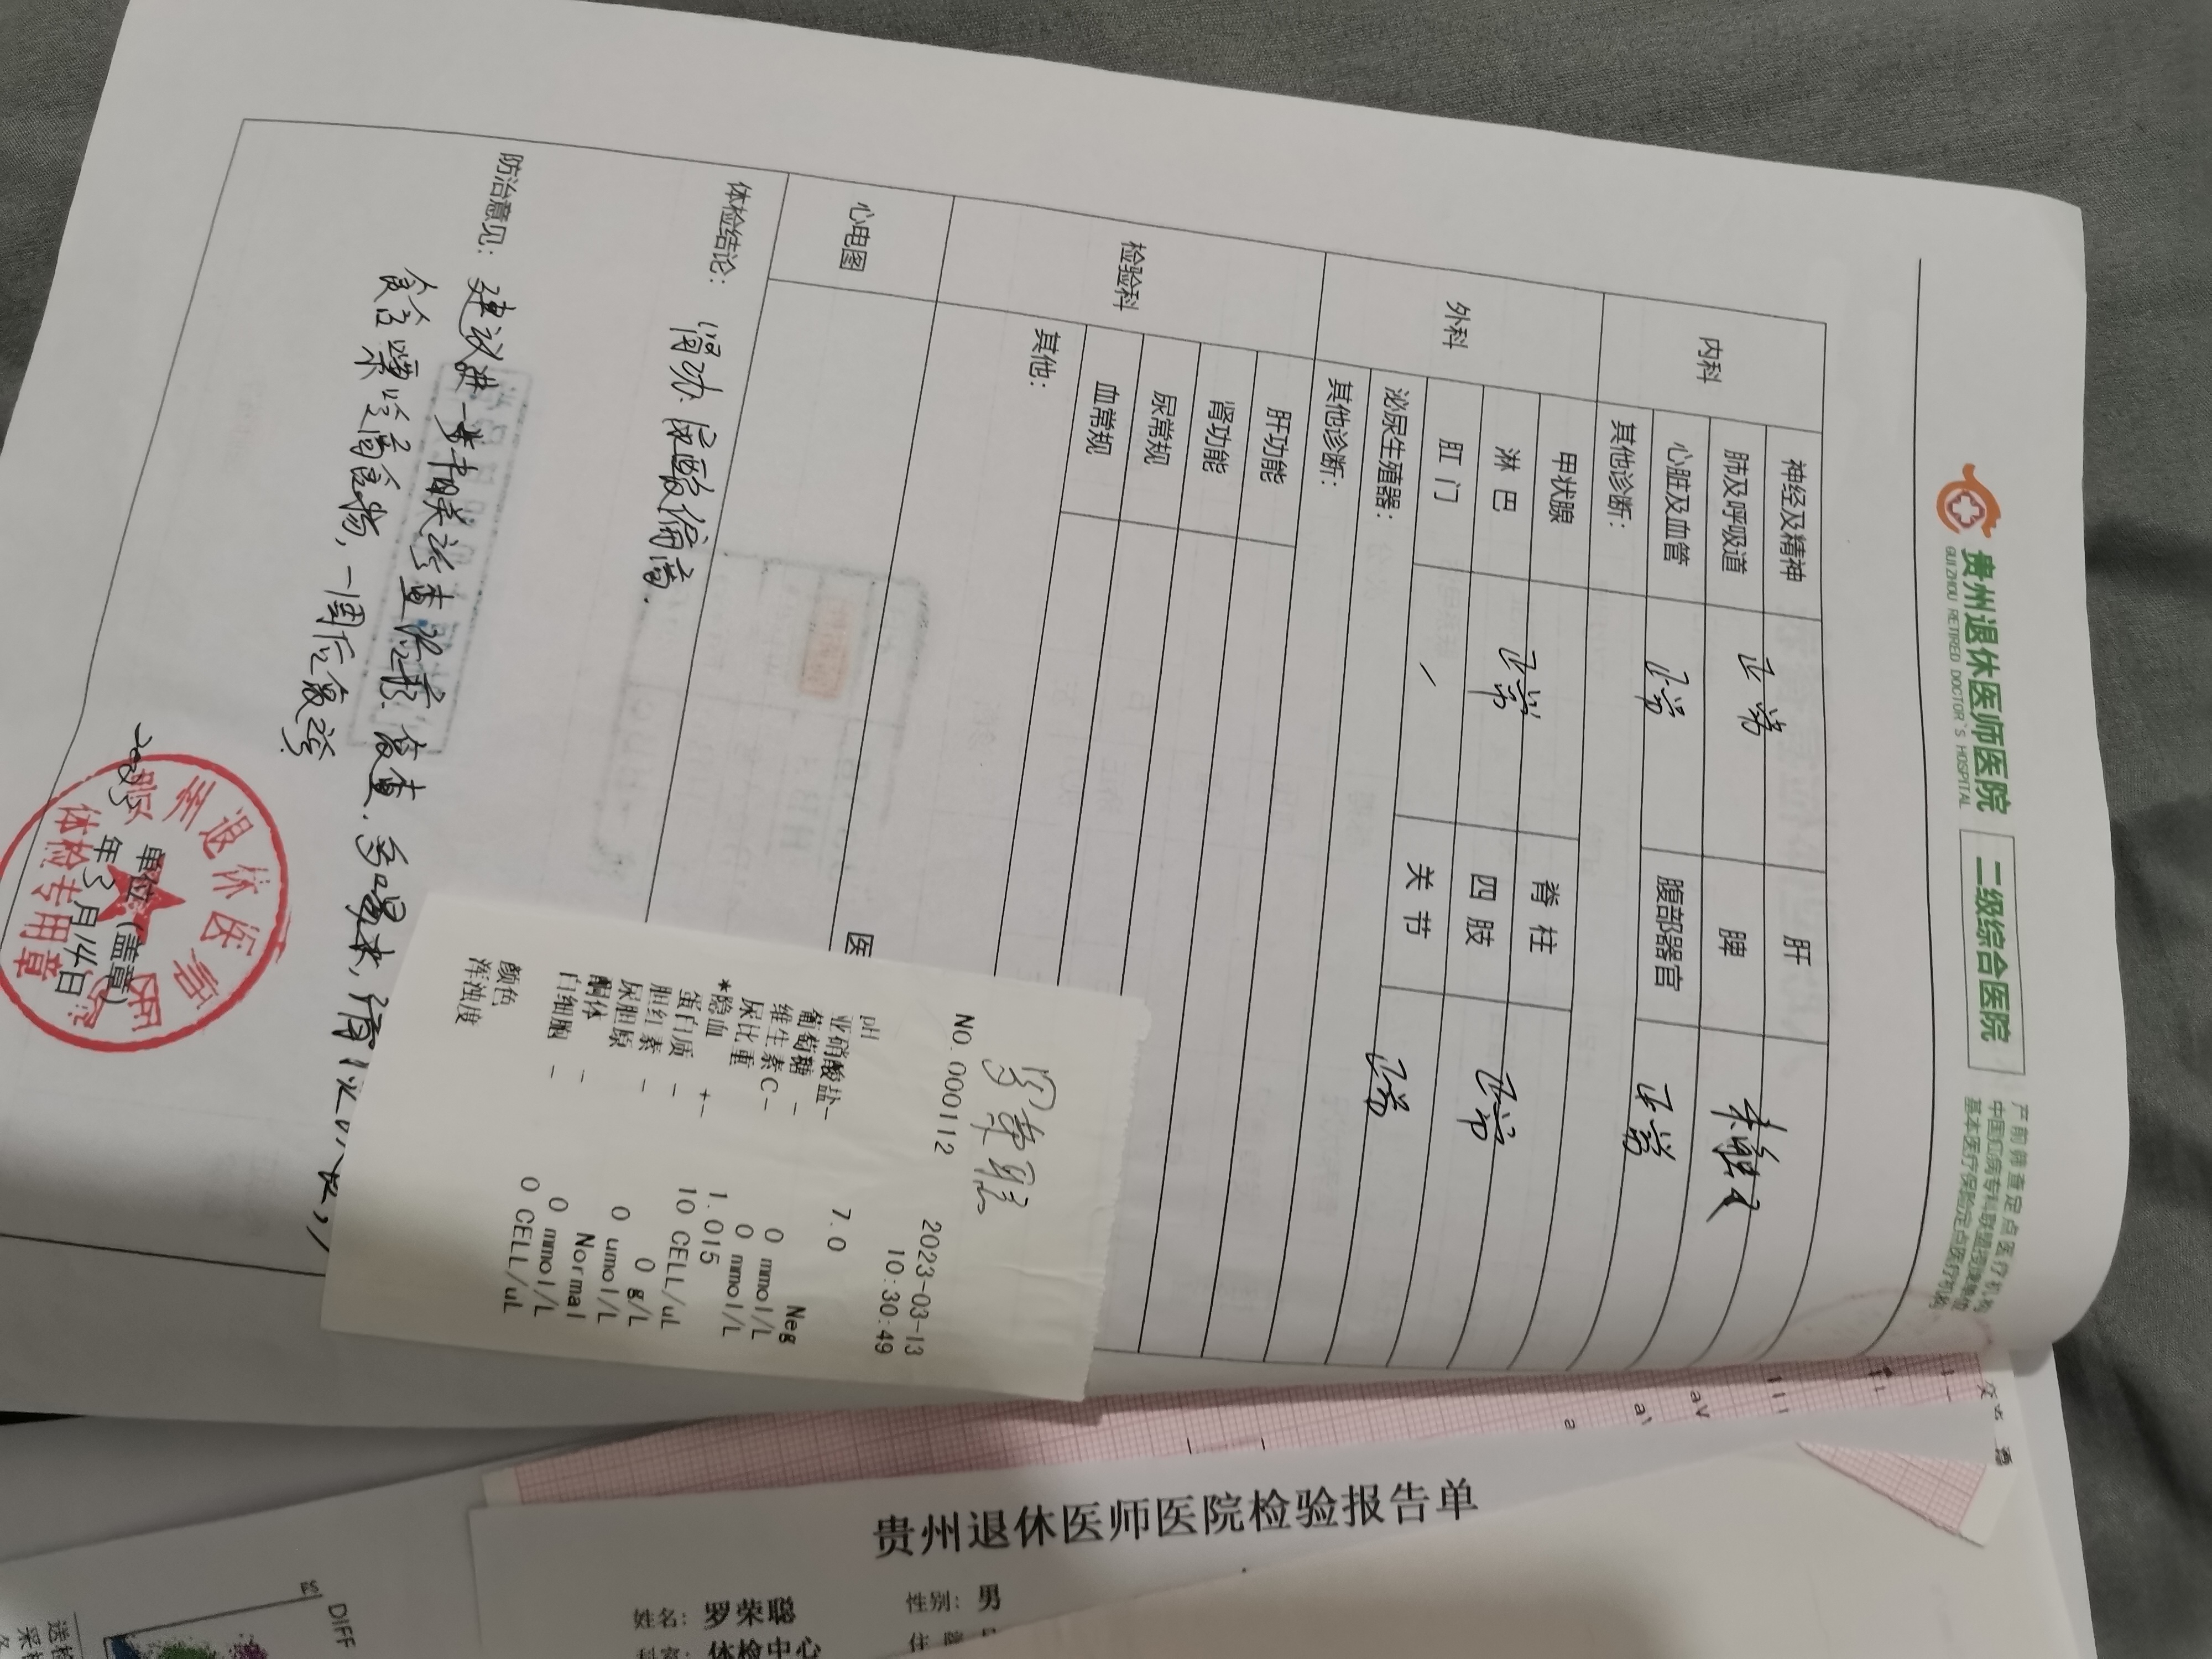 贵州退休医师医院
GUIZHOU RETIRED DOCTOR'S HOSPITAL
二级综合医院
产前筛查定点医疗机构
基本医疗保险定点医疗机构
内科
神经及精神
肝
肺及呼吸道
正常
脾
未触及
心脏及血管
正常
腹部器官
正常
其他诊断：
外科
甲状腺
脊柱
淋巴
正常
四肢
正常
肛门
/
关节
正常
泌尿生殖器：
其他诊断：
检验科
肝功能
肾功能
尿常规
血常规
其他：
心电图
医
体检结论：
肾功 尿酸偏高.
防治意见：
建议进一步相关检查治疗 复查. 多喝水,
食含嘌呤高食物, 一周后复诊
单位（盖章）
2023年3月14日
州退休医
体检专用章
罗荣聪
NO.000112
2023-03-13
10:30:49
pH 7.0
亚硝酸盐- Neg
葡萄糖 - 0 mmol/L
维生素C- 0 mmol/L
尿比重 1.015
*隐血 +- 10 CELL/uL
蛋白质 - 0 g/L
胆红素 0 umol/L
尿胆原 - Normal
酮体 - 0 mmol/L
白细胞 - 0 CELL/uL
颜色
浑浊度
aV
贵州退休医师医院检验报告单
姓名：罗荣聪 性别：男
科室：体检中心 住院
DIFF
FS
送检
采样